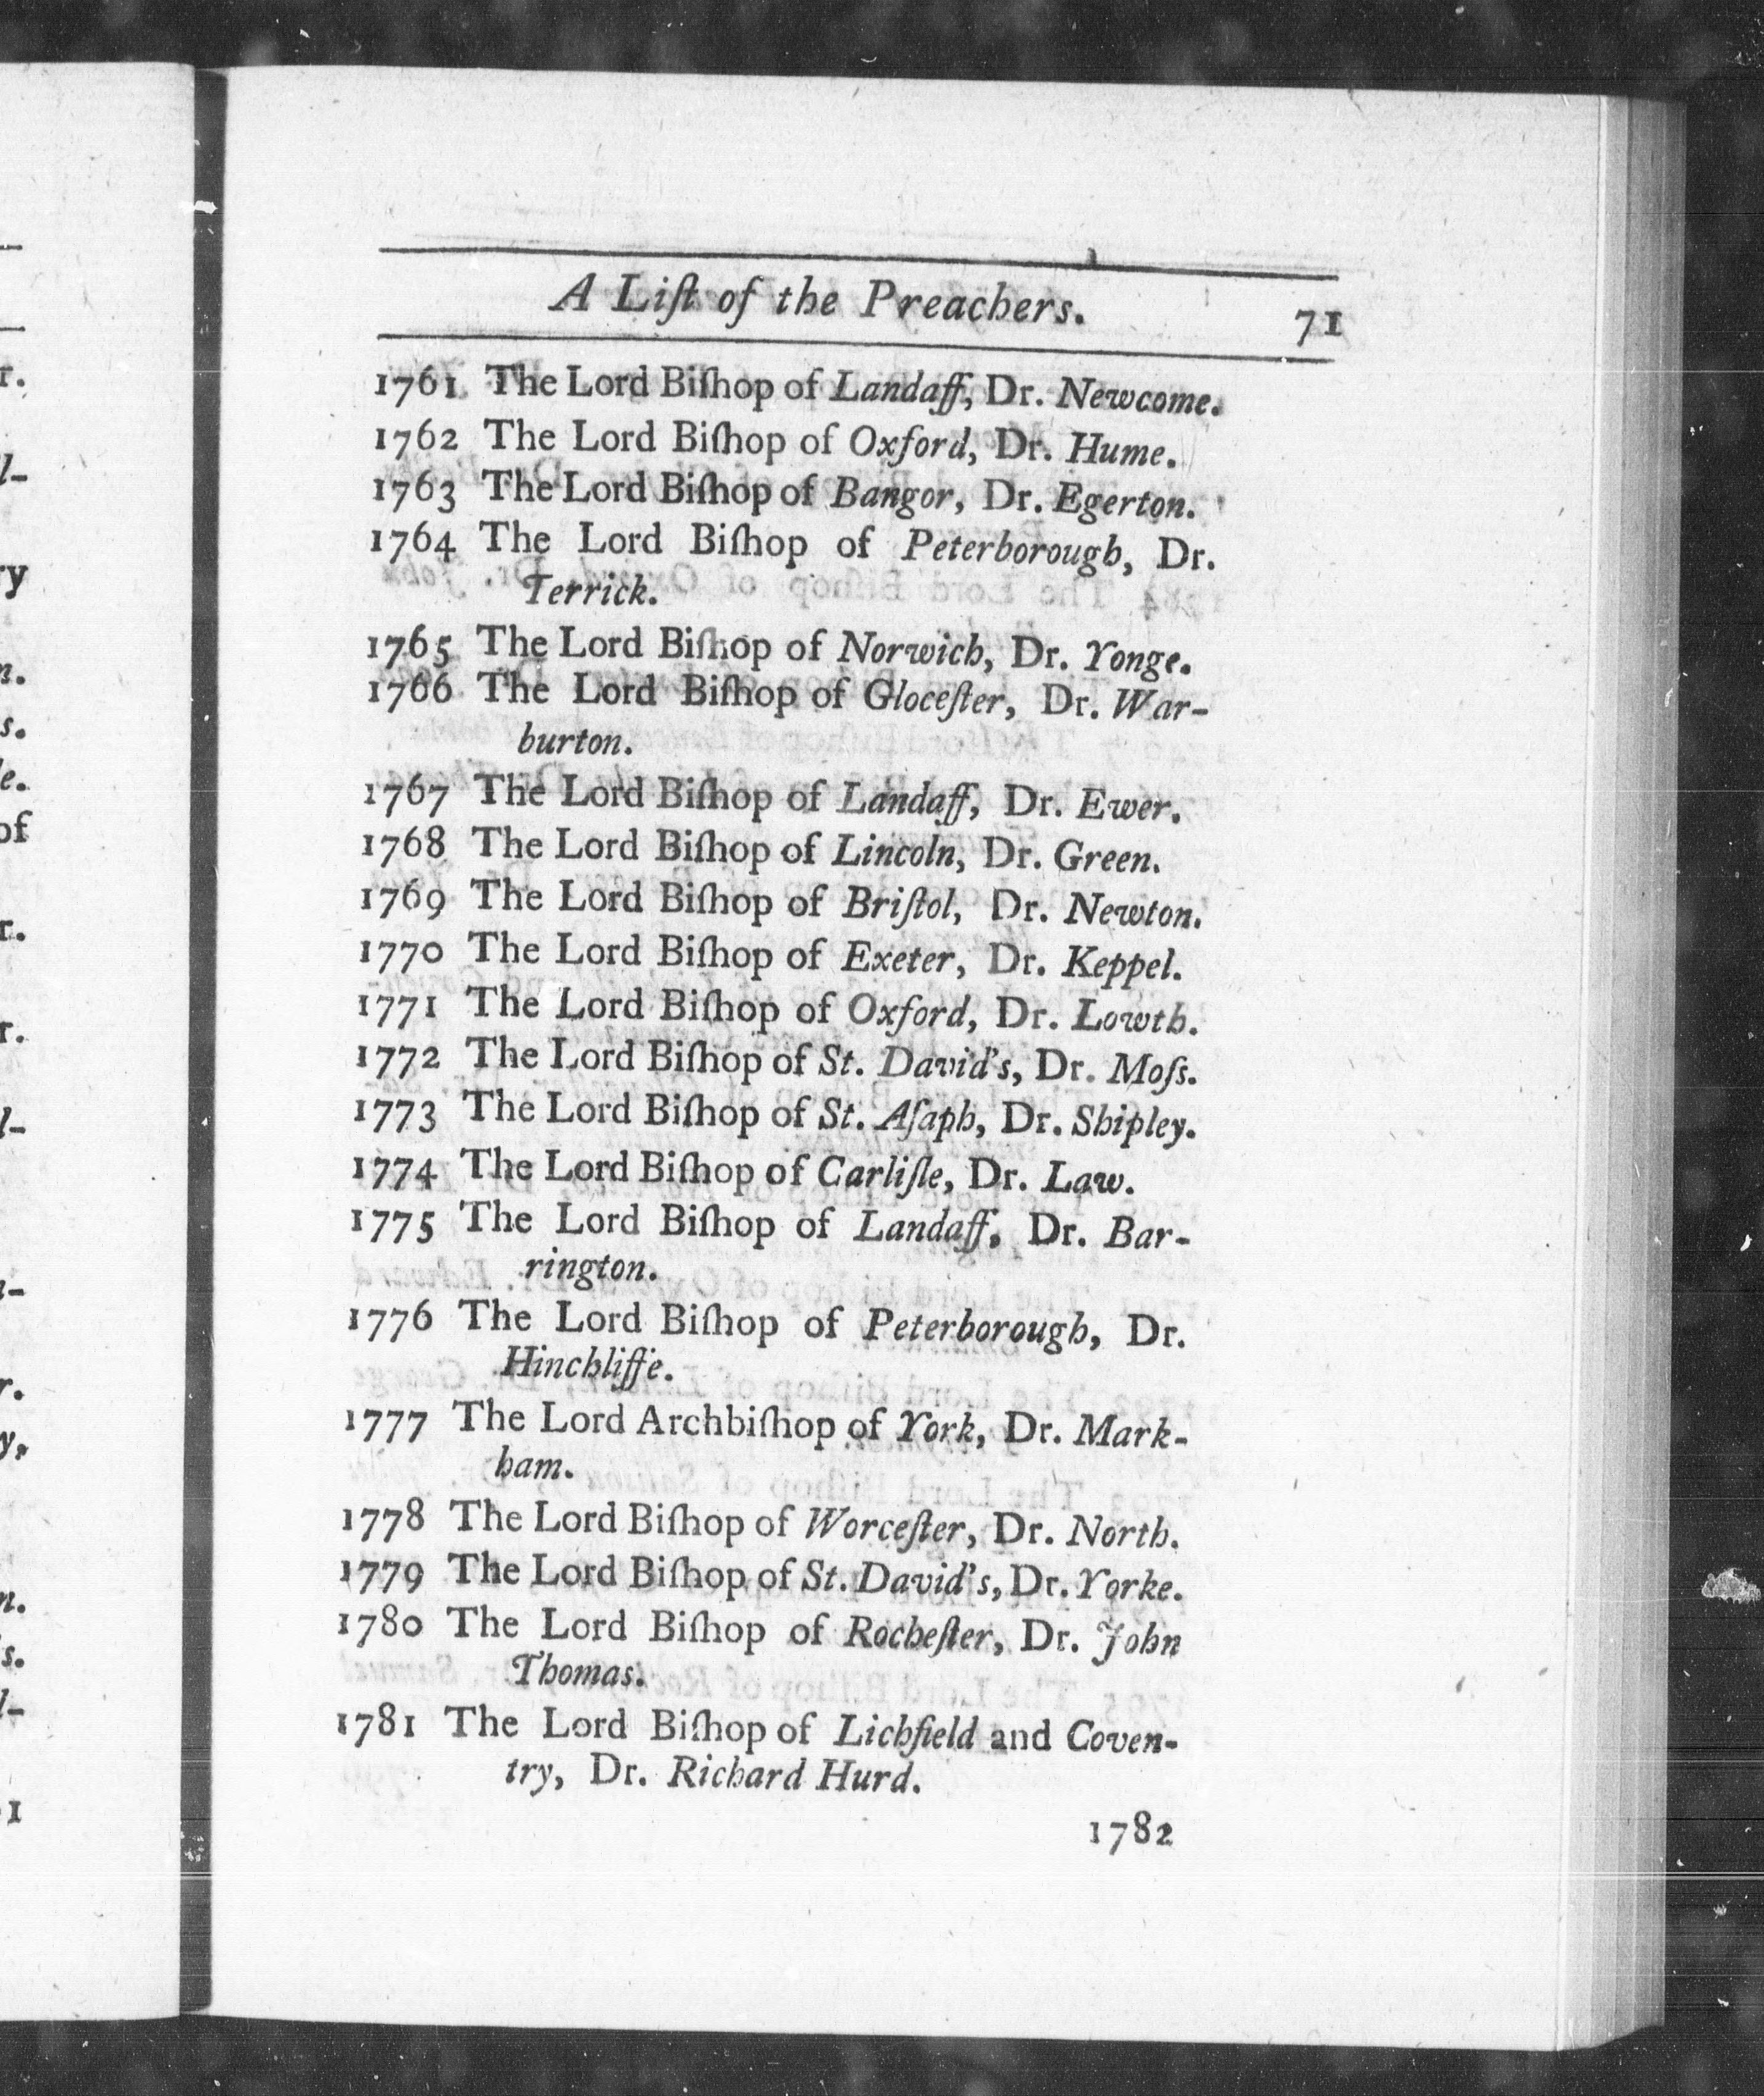 A Liſt of the Preachers. 71
1761 The Lord Biſhop of Landaff, Dr. Newcome.
1762 The Lord Biſhop of Oxford, Dr. Hume.
1763 The Lord Biſhop of Bangor, Dr. Egerton.
1764 The Lord Biſhop of Peterborough, Dr.
Terrick.
1765 The Lord Biſhop of Norwich, Dr. Yonge.
1766 The Lord Biſhop of Gloceſter, Dr. War-
burton.
1767 The Lord Biſhop of Landaff, Dr. Ewer.
1768 The Lord Biſhop of Lincoln, Dr. Green.
1769 The Lord Biſhop of Briſtol, Dr. Newton.
1770 The Lord Biſhop of Exeter, Dr. Keppel.
1771 The Lord Biſhop of Oxford, Dr. Lowth.
1772 The Lord Biſhop of St. David's, Dr. Moſs.
1773 The Lord Biſhop of St. Aſaph, Dr. Shipley.
1774 The Lord Biſhop of Carliſle, Dr. Law.
1775 The Lord Biſhop of Landaff, Dr. Bar-
rington.
1776 The Lord Biſhop of Peterborough, Dr.
Hinchliffe.
1777 The Lord Archbiſhop of York, Dr. Mark-
ham.
1778 The Lord Biſhop of Worceſter, Dr. North.
1779 The Lord Biſhop of St. David's, Dr. Yorke.
1780 The Lord Biſhop of Rocheſter, Dr. John
Thomas.
1781 The Lord Biſhop of Lichfield and Coven-
try, Dr. Richard Hurd.
1782